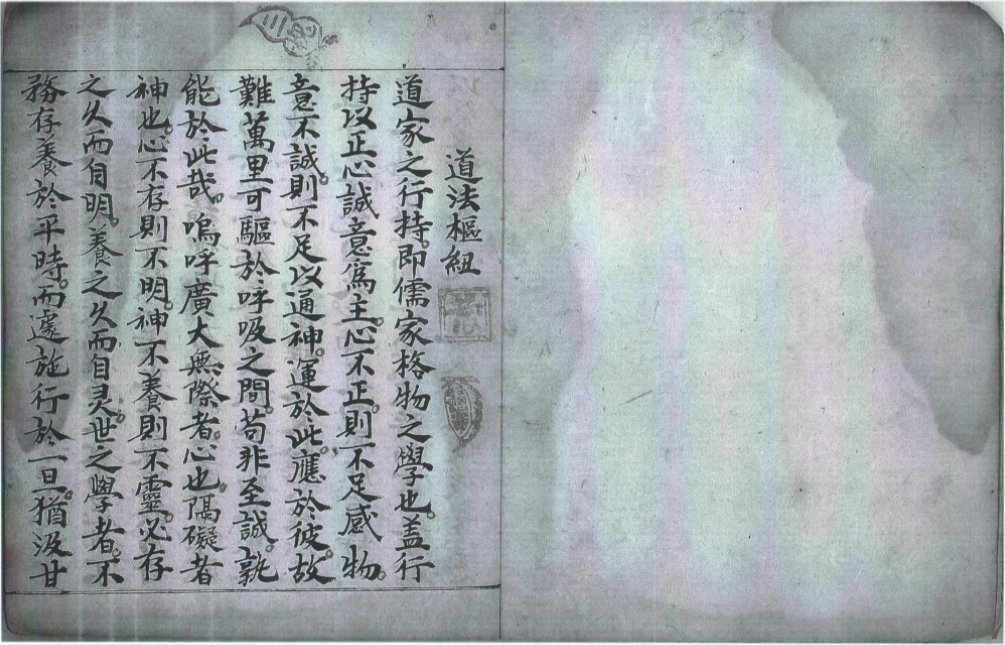 道法樞紐
道家之行持。即儒家格物之學也。盖行
持以正心誠意爲主。心不正則不足感物。
意不誠則不足以通神。運於此應於彼。故
難萬里可驅於呼吸之間。苟非至誠。孰
能於此哉。嗚呼廣大無際者。心也。隔礙者
神也。心不存則不明。神不養則不靈。必存
之久而自明。養之久而自灵。世之學者。不
務存養於平時。而遽施行於一旦。猶汲甘